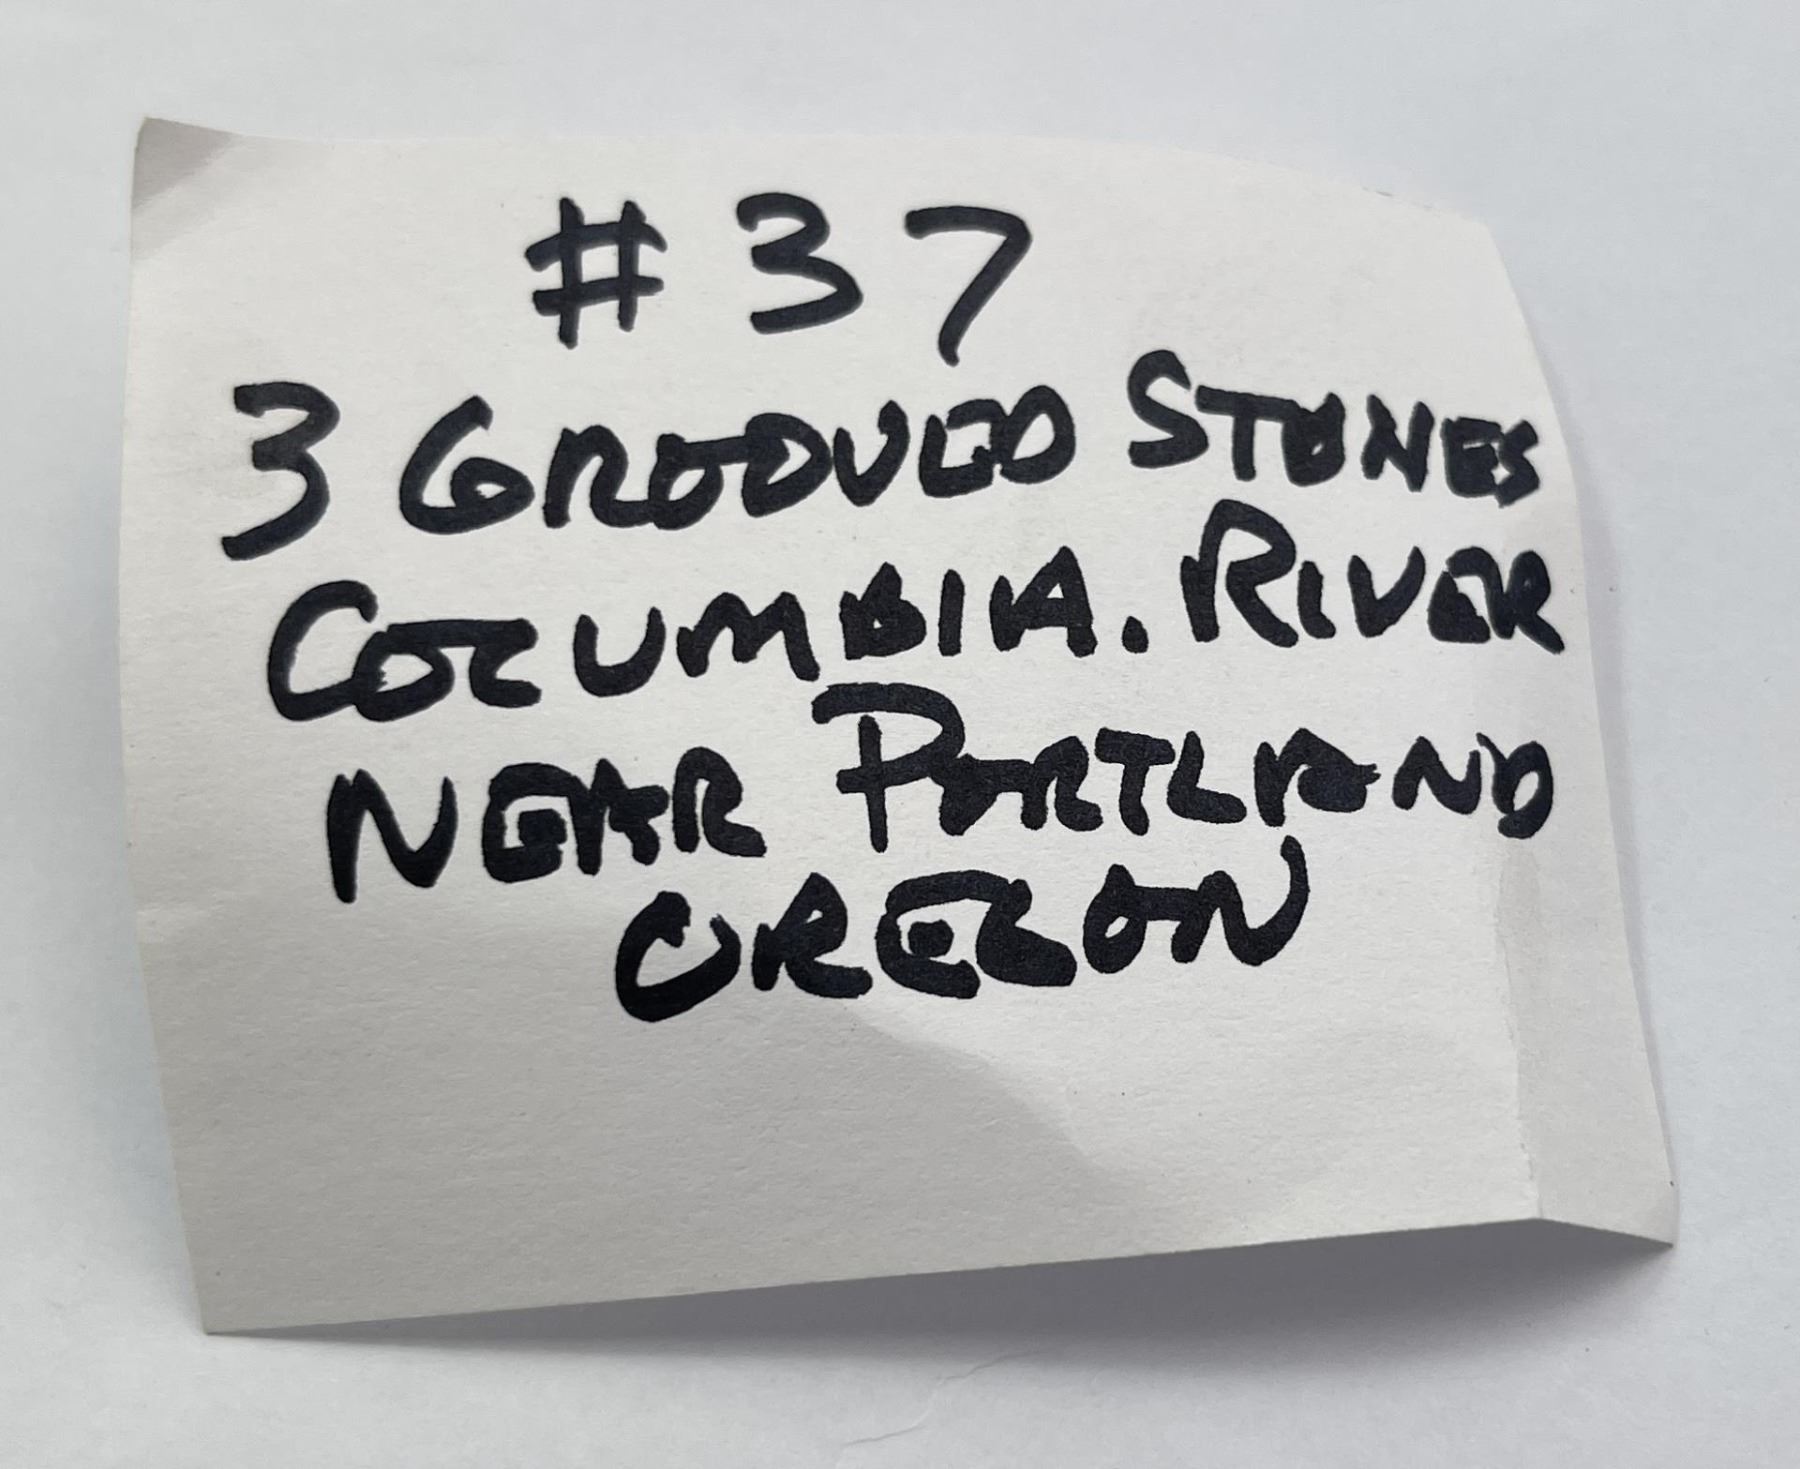 #37
3 GROOVED STONES
COLUMBIA. RIVER
NEAR PORTLAND
OREGON